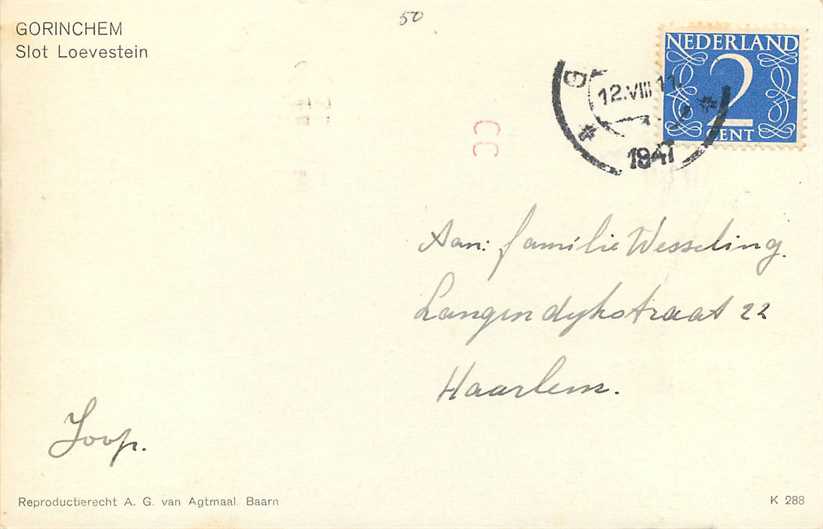 GORINCHEM
Slot Loevestein
50
NEDERLAND
2
CENT
12.VIII
1947
Aan: familie Wesseling.
Langendykstraat 22
Haarlem.
Joop.
Reproductierecht A. G. van Agtmaal. Baarn
K 288